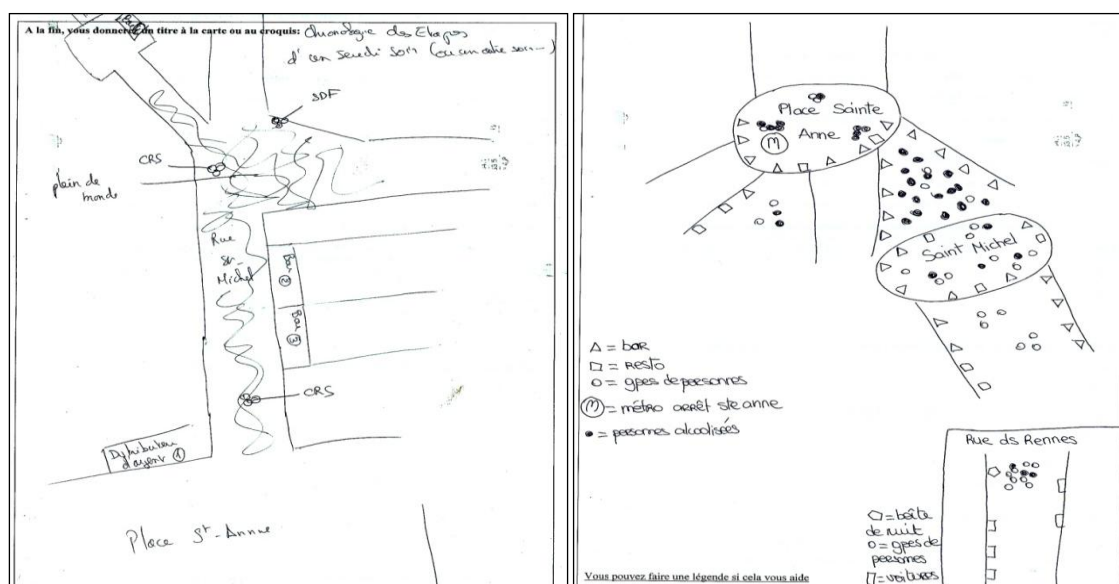 A la fin, vous donnerez un titre à la carte ou au croquis: Chronologie des Etapes
d'un Jeudi Soir (ou un autre soir...)
SDF
CRS
plein de
monde
Rue
St-
Michel
Bar ②
Bar ③
CRS
Distributeur
d'argent ①
Place St-Anne
Place Sainte
Anne
M
Saint Michel
△ = bar
□ = resto
○ = gpes de personnes
Ⓜ = métro arrêt ste anne
● = personnes alcoolisées
Rue ds Rennes
= boîte
de nuit
○ = gpes de
personnes
= voitures
Vous pouvez faire une légende si cela vous aide